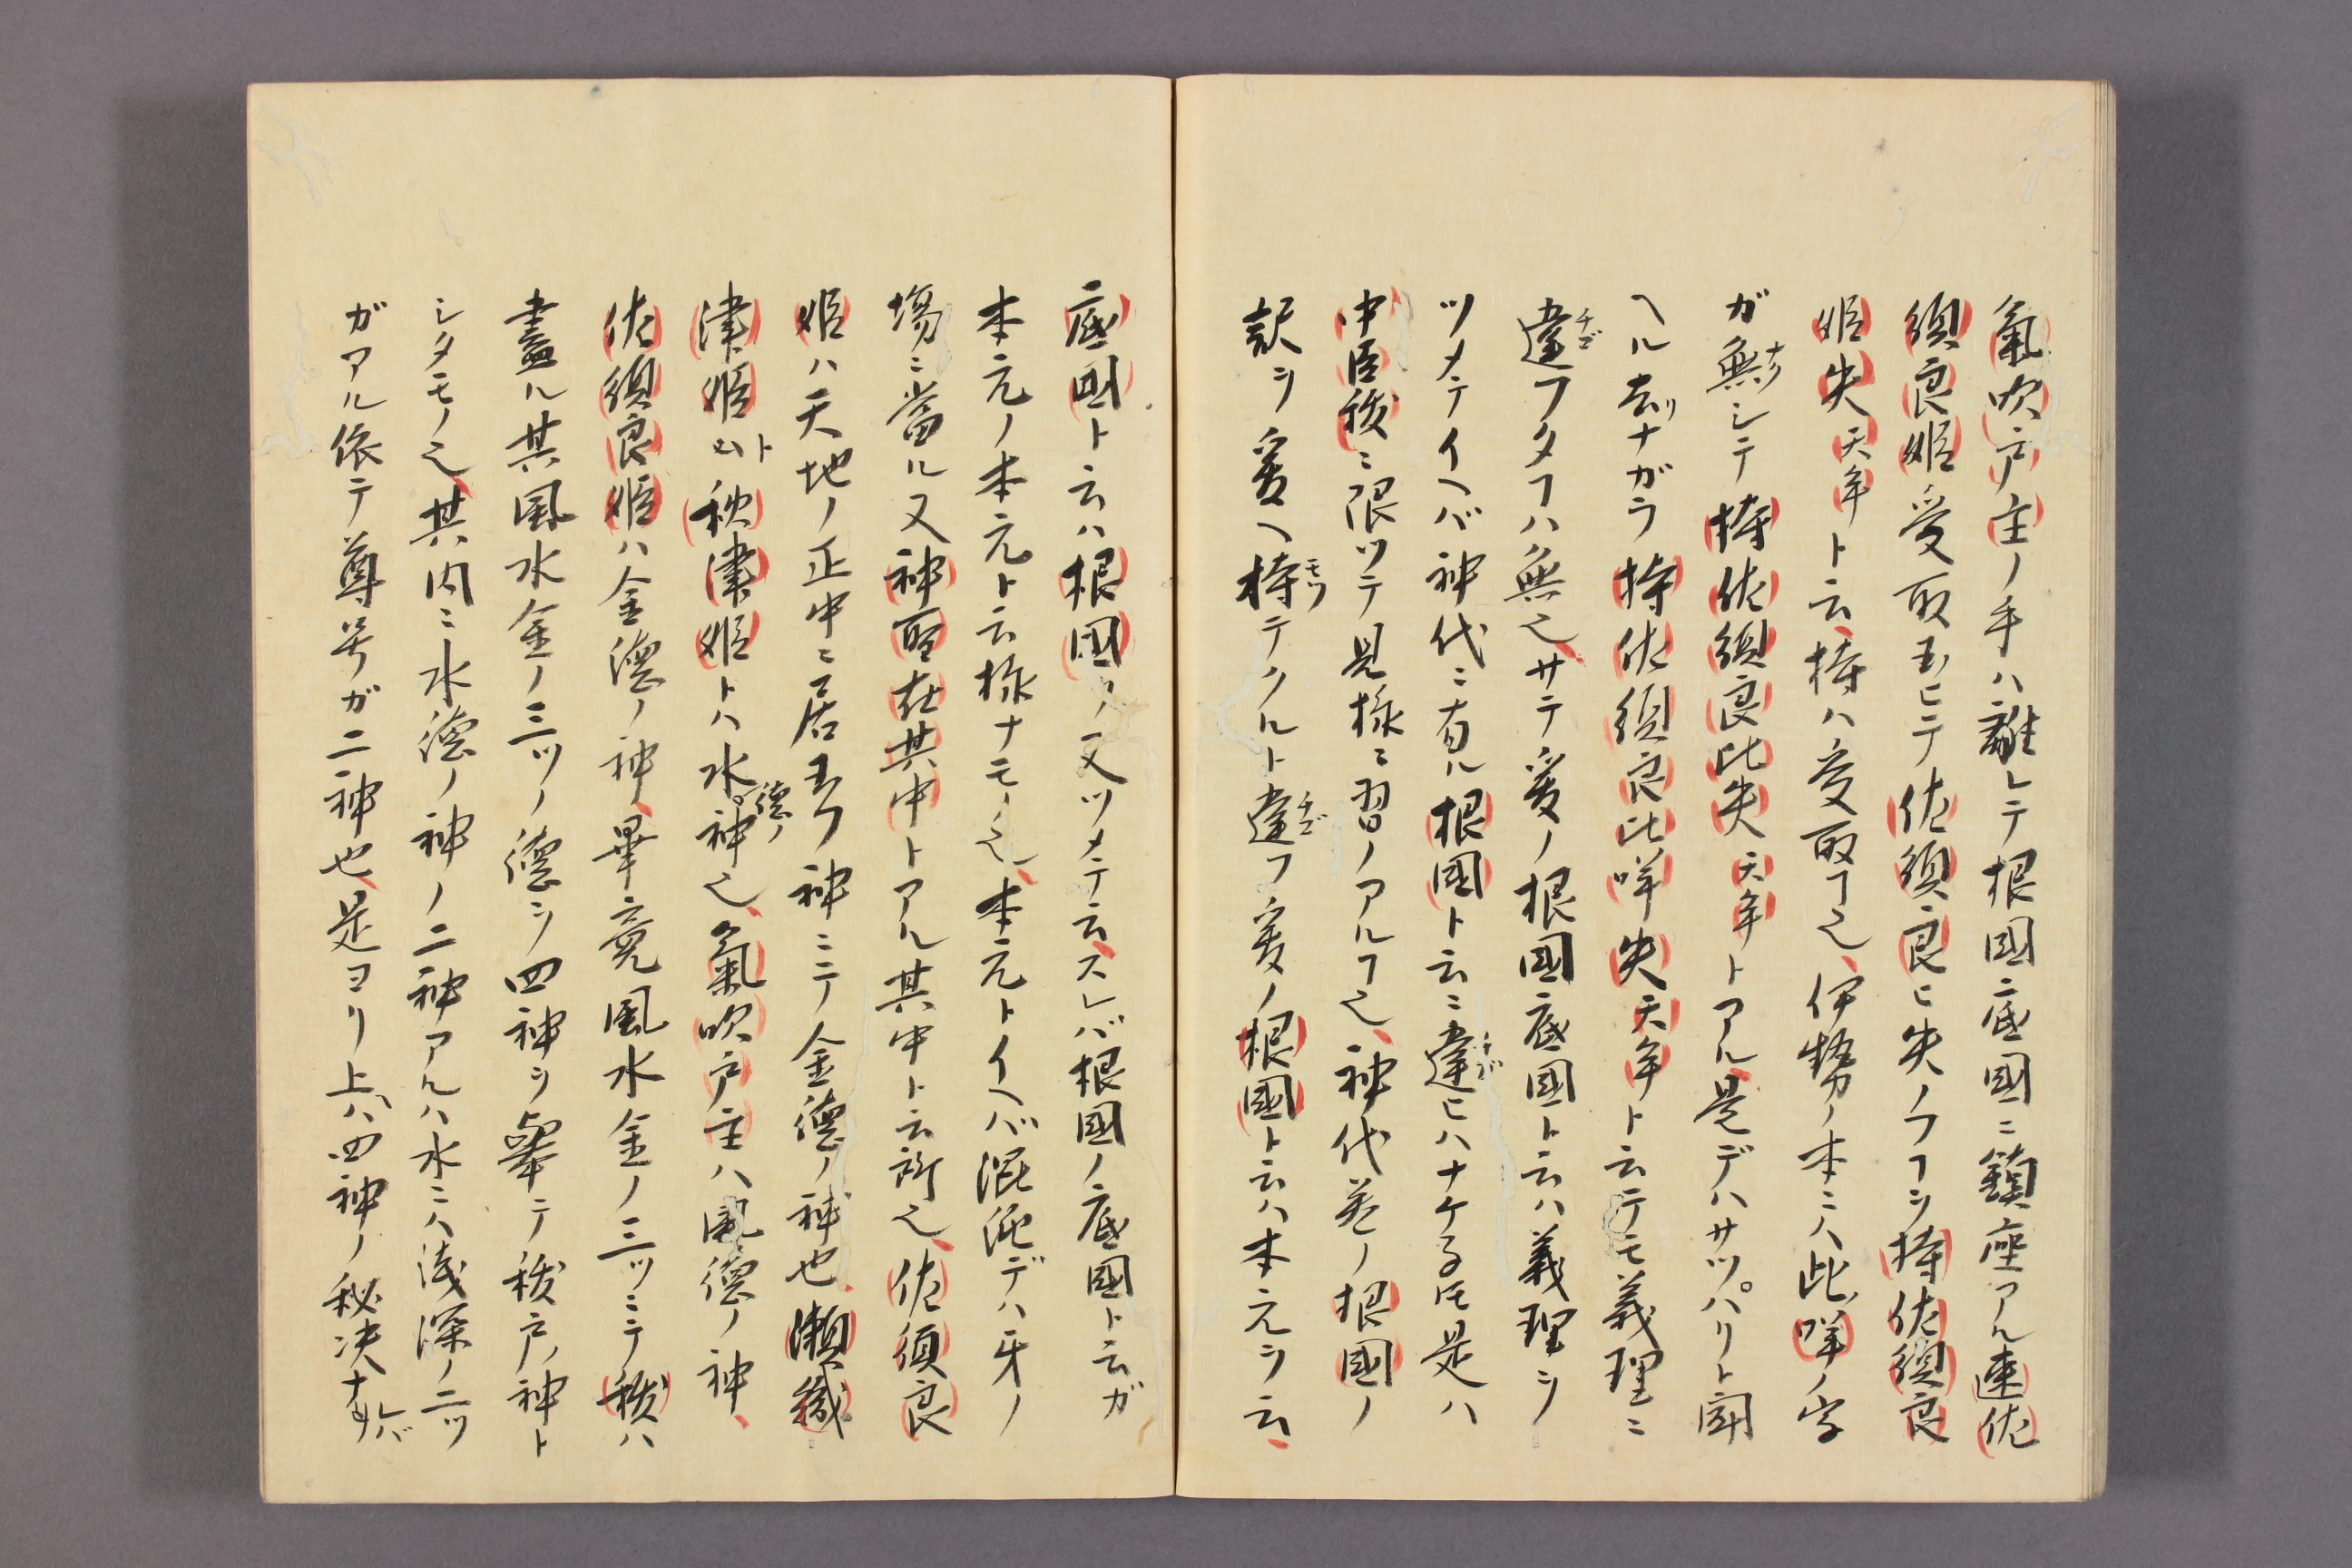 氣吹戸主ノ手ハ離レテ根國底國ニ鎮座アル速佐
須良姫受取玉ヒテ佐須良ヒ失ノフヿヲ持佐須良
姫失天牟ト云持ハ受取ヿ也伊勢ノ本ニハ此咩ノ字
ガ無シテ持佐須良比失天牟トアル是デハサッパリト聞
ヘル去ナガラ持佐須良比咩失天牟ト云テモ義理ニ
違フタヿハ無也サテ爰ノ根國底國ト云ハ義理ヲ
ツメテイヘバ神代ニ有ル根國ト云ニ違ヒハナケレ𪜈是ハ
中臣祓ニ限ッテ見様ニ習ノアルヿ也神代巻ノ根國ノ
訳ヲ爰ヘ持テクルト違フ爰ノ根國ト云ハ本元ヲ云
底國ト云ハ根國ノ又ツメテ云スレバ根國ノ底國ト云ガ
本元ノ本元ト云様ナモノ也本元トイヘバ混沌デハ牙ノ
場ニ當ル又神聖在其中トアル其中ト云所也佐須良
姫ハ天地ノ正中ニ居玉フ神ニテ金德ノ神也瀬織
津姫ト秋津姫トハ水德ノ神也氣吹戸主ハ風德ノ神
佐須良姫ハ金德ノ神畢竟風水金ノ三ツニテ祓ハ
盡ル其風水金ノ三ツノ德ヲ四神ヲ擧テ祓戸神ト
シタモノ也其内ニ水德ノ神ノ二神アルハ水ニハ浅深ノ二ツ
ガアル依テ尊号ガ二神也是ヨリ上ハ四神ノ秘决ナレバ